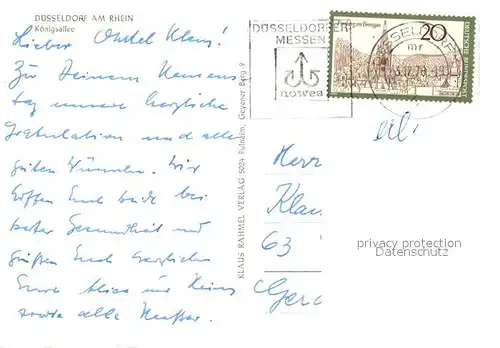 DÜSSELDORF AM RHEIN
Königsallee
Lieber Onkel Klaus!
Zu Deinem Namens
tag unsere herzliche
Gratulation und alle
guten Wünsche. Wir
hoffen Euch beide bei
bester Gesundheit und
grüßen Euch herzlichst
Eure Alice und Heinz
sowie alle Neusser.
KLAUS RAHMEL VERLAG 5024 Pulheim, Geyener Berg 9
DÜSSELDORFER
MESSEN
nowea
20
DÜSSELDORF
mr
Herr
Klau
63
privacy protection
Datenschutz